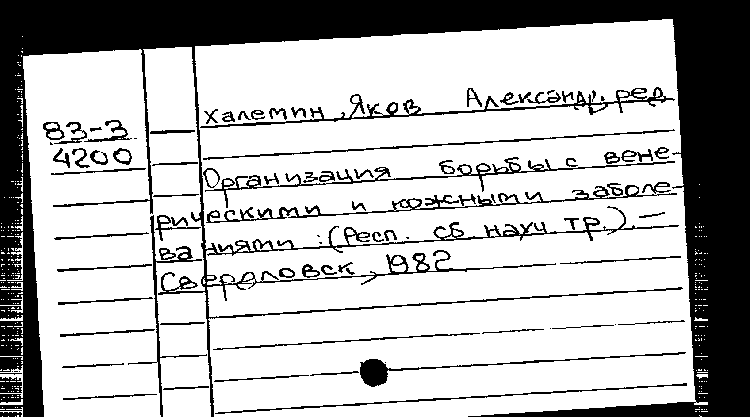 Халемин, Яков Александр., ред.
83-3
4200
Организация борьбы с вене-
рическими и кожными заболе-
ваниями : (Респ. сб. научн. тр.). —
Свердловск, 1982